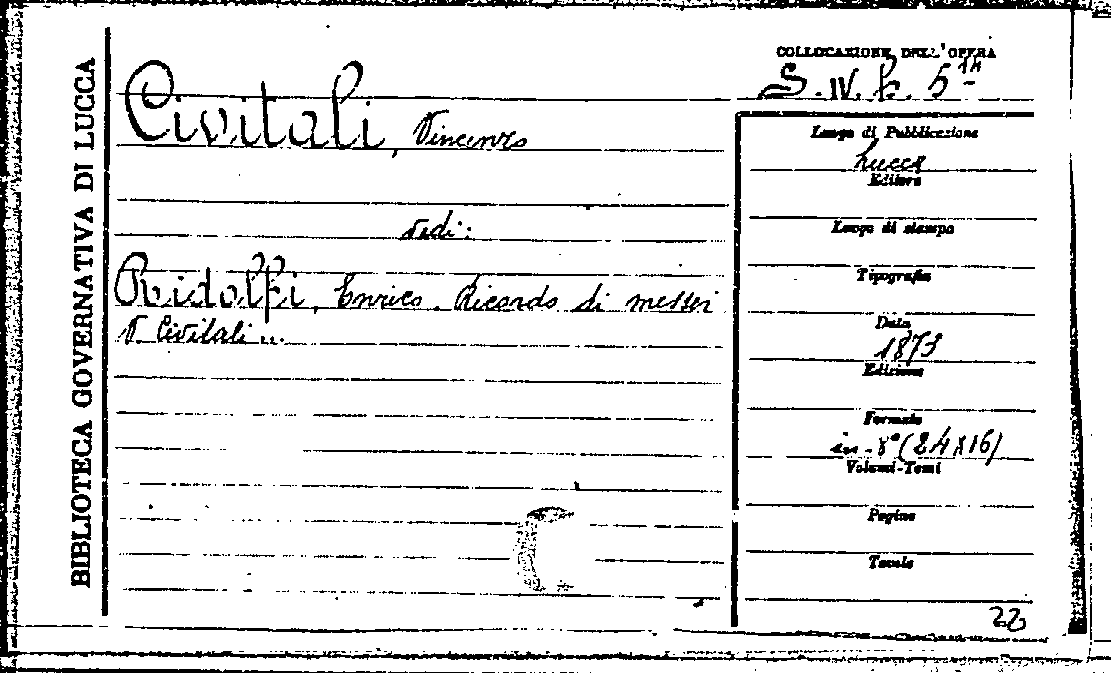 BIBLIOTECA GOVERNATIVA DI LUCCA
Civitali, Vincenzo
vedi:
Ridolfi, Enrico. Ricordo di messer
V. Civitali...
COLLOCAZIONE DELL'OPERA
Luogo di Pubblicazione
Lucca
Editore
Luogo di stampa
Tipografia
Data
1873
Edizione
Formato
in-8° (24x16)
Volumi-Tomi
Pagine
Tavole
22